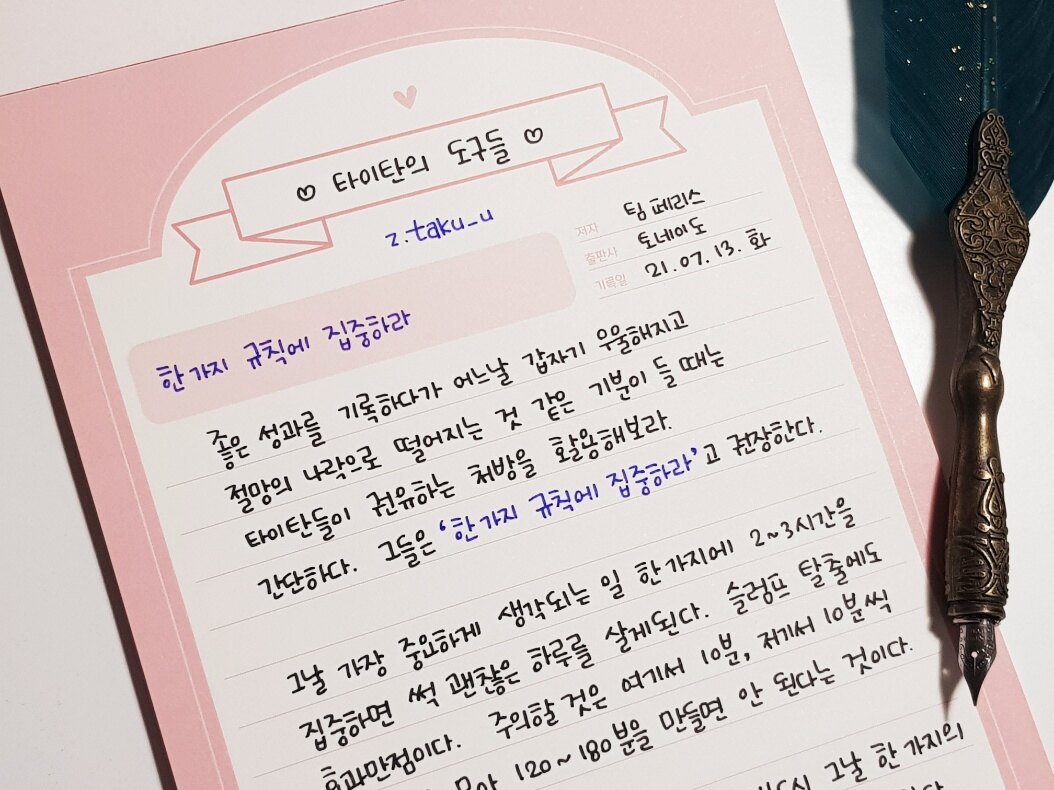 ♡ 타이탄의 도구들 ♡
z.taku_u
저자 팀 페리스
출판사 토네이도
기록일 21.07.13. 화
한 가지 규칙에 집중하라
좋은 성과를 기록하다가 어느날 갑자기 우울해지고
절망의 나락으로 떨어지는 것 같은 기분이 들 때는
타이탄들이 권유하는 처방을 활용해보라.
간단하다. 그들은 '한 가지 규칙에 집중하라'고 권장한다.
그날 가장 중요하게 생각되는 일 한 가지에 2~3시간을
집중하면 썩 괜찮은 하루를 살게된다. 슬럼프 탈출에도
효과만점이다. 주의할 것은 여기서 10분, 저기서 10분씩
모아 120~180분을 만들면 안 된다는 것이다.
그날 한 가지의